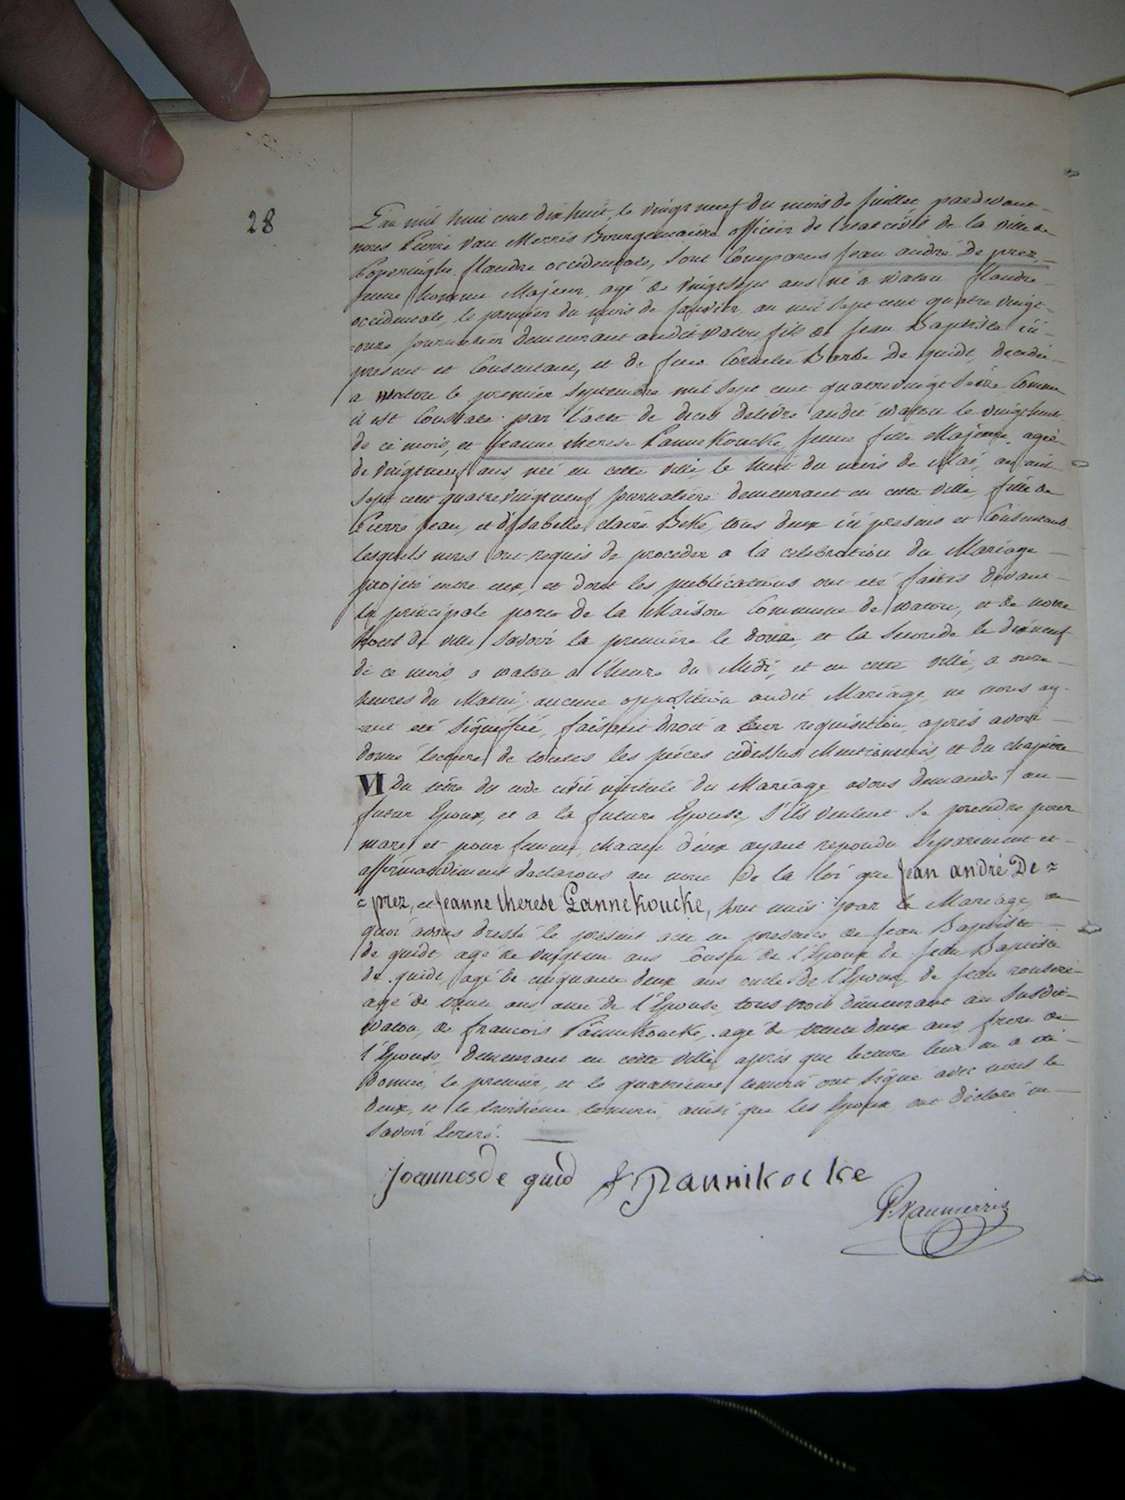 28
L'an mil huit cent dix huit, le vingt neuf du mois de Juillet, pardevant
nous Pierre Van Merris Bourguemaitre officier de l'état civil de la ville de
Poperinghe flandre occidentale, sont Comparus Jean andré De prez,
jeune homme Majeur, agé de vingt sept ans né a watou flandre
occidentale, le premier du mois de Janvier an mil sept cent quatre vingt
onze journalier demeurant audit watou fils de Jean Baptiste ici
present et Consentant, et de feue Cornelie Barbe De quidt, decedée
a watou le premier Septembre mil sept cent quatrevingt Comme
il est Constaté par l'acte de deces delivré audit watou le vingt huit
de ce mois, et Jeanne therese Pannekoucke jeune fille Majeure, agée
de vingt neuf ans, née en cette ville, le huit du mois de Mai, an mil
Sept cent quatrevingt neuf journaliere demeurant en cette ville, fille de
Pierre Jean, et d'Isabelle claire Beke, tous deux ici presens et Consentans
lesquels nous ont requis de proceder a la celebration du Mariage
projeté entre eux, et dont les publications ont été faites devant
la principale porte de la Maison Commune de watou, et de notre
hotel de ville savoir la premiere le douze, et la Seconde le dixneuf
de ce mois a watou a l'heure du Midi, et en cette ville, a onze
heures du Matin, aucune opposition audit Mariage, ne nous ay-
ant été Signifiée, faisant droit a leur requisition, après avoir
donné lecture de toutes les pièces cidessus Mentionnées, et du chapitre
VI du titre du code civil intitulé du Mariage avons demandé au
futur Epoux, et a la future Epouse, S'ils veulent Se prendre pour
mari et pour femme, chacun d'eux ayant repondu Separement et
affirmativement declarons au nom de la loi que Jean andré De =
= prez, et Jeanne therese Pannekoucke, sont unis par le Mariage, de
quoi avons dressé le present acte en presence de Jean Baptiste
de quidt agé de vingt un ans Cousin de l'Epoux de Jean Baptiste
de quidt, agé de cinquante deux ans oncle de l'Epoux, de Jean
agé de trente ans ami de l'Epouse, tous trois demeurant au Susdit
watou, de francois Pannekoucke, agé de trente deux ans, frere de
l'Epouse, demeurant en cette ville après que lecture leur en a été
donnée, le premier, et le quatrieme temoins ont Signé avec nous le
deux, et le troisieme temoins, ainsi que les Epoux, ont déclaré ne
savoir
Joannes de quid f Pannikocke
P. Vanmerris